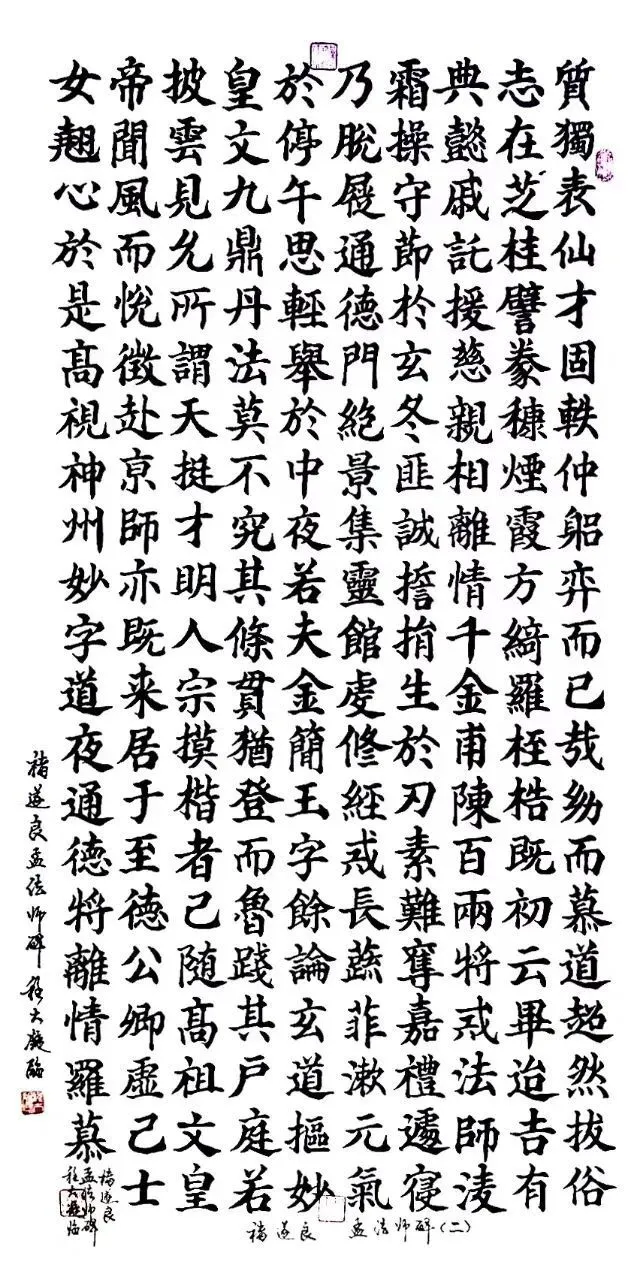 質獨表仙才固軼仲躳弈而已哉幼而慕道超然拔俗
志在芝桂譬豢穅煙霞方綺羅桎梏既初云畢迨吉有
典懿戚託援慈親相離情千金甫陳百兩將戒法師淩
霜操守節於玄冬匪誠擔捐生於刃素難奪嘉禮遽寑
乃脫屣通德門絕景集靈館虔修經戒長蔬菲漱元氣
於停午思輕舉於中夜若夫金簡玉字餘論玄道摳妙
皇文九鼎丹法莫不究其條貫猶登而魯踐其戶庭若
披雲見允所謂天挺才明人宗摸楷者己随髙祖文皇
帝聞風而悅徵赴京師亦既来居于至德公卿虛己士
女翹心於是髙視神州妙字道夜通德將離情羅慕
褚遂良孟法师碑 程大凝臨
褚遂良
孟法师碑
程大凝临
褚遂良 孟法师碑(二)